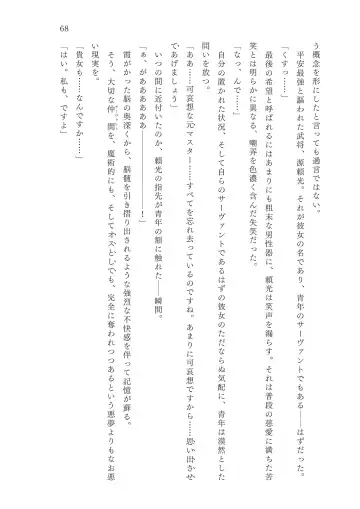 68
う概念を形にしたと言っても過言ではない。
平安最強と謳われた武将、源頼光。それが彼女の名であり、青年のサーヴァントでもある――はずだった。
「くすっ……」
最後の希望と呼ばれるにはあまりにも粗末な男性器に、頼光は笑声を漏らす。それは普段の慈愛に満ちた苦
笑とは明らかに異なる、嘲弄を色濃く含んだ失笑だった。
「なっ、んで……」
自分の置かれた状況、そして自らのサーヴァントであるはずの彼女のただならぬ気配に、青年は漠然とした
問いを放つ。
「ああ……可哀想な元マスター……すべてを忘れ去っているのですね。あまりに可哀想ですから……思い出させ
てあげましょう」
いつの間に近付いたのか、頼光の指先が青年の額に触れた――瞬間。
「ぁ、がああああああ――――――！」
霞がかった脳の奥深くから、脳髄を引き摺り出されるような強烈な不快感を伴って記憶が蘇る。
そう、大切な仲間を、魔術的にも、そしてオスとしても、完全に奪われつつあるという悪夢よりもなお悪
い現実を。
「貴女も……なんですか……」
「はい。私も、ですよ」